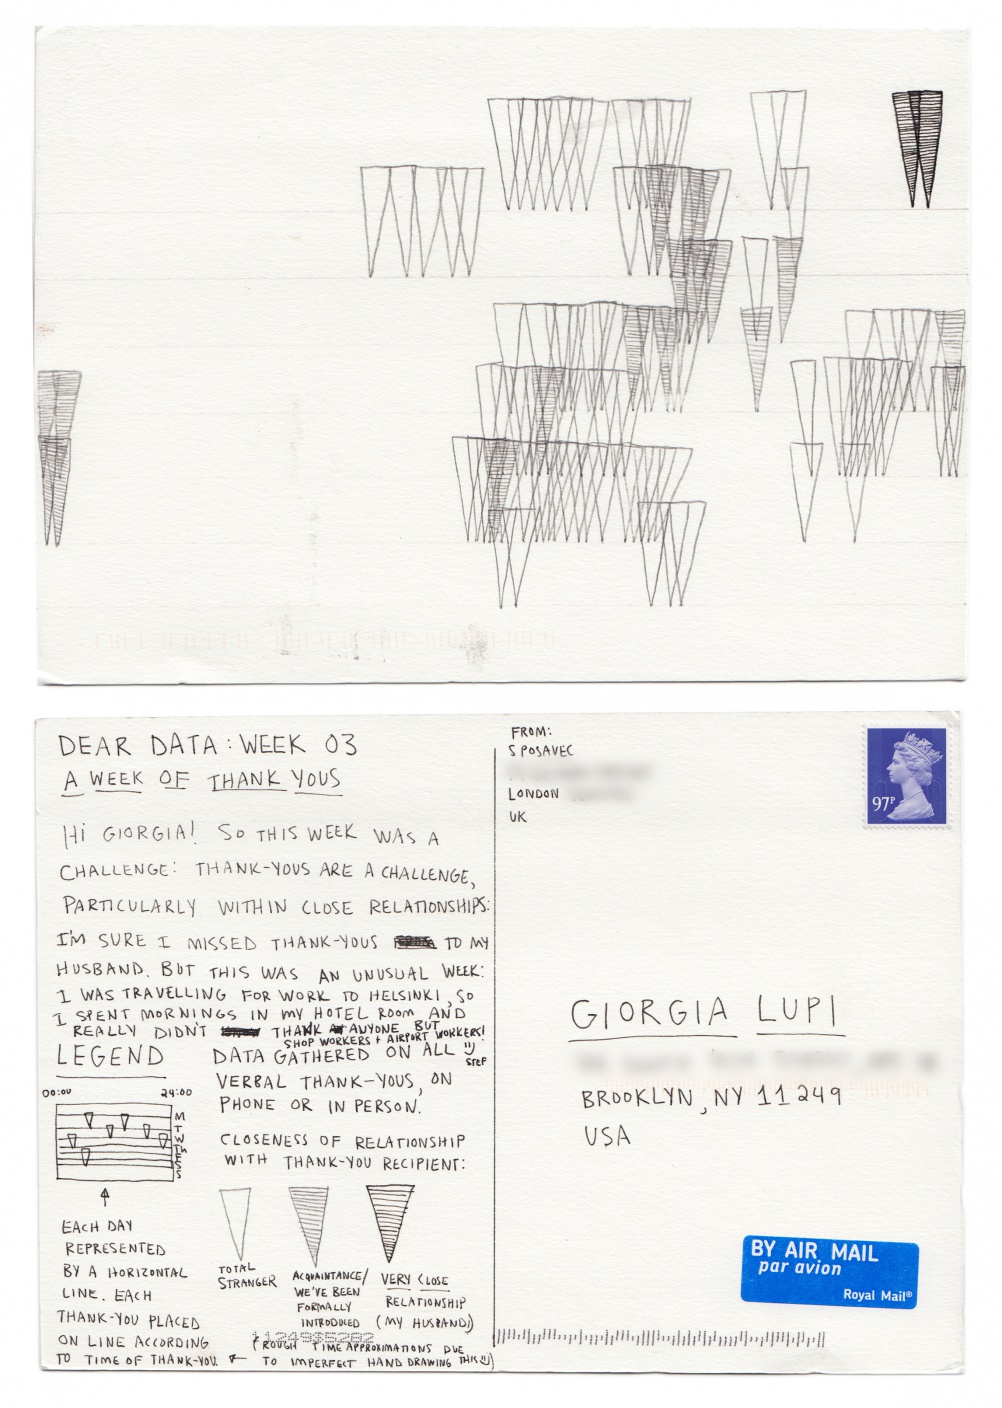 DEAR DATA: WEEK 03
A WEEK OF THANK YOUS
HI GIORGIA! SO THIS WEEK WAS A
CHALLENGE: THANK-YOUS ARE A CHALLENGE,
PARTICULARLY WITHIN CLOSE RELATIONSHIPS:
I'M SURE I MISSED THANK-YOUS TO MY
HUSBAND. BUT THIS WAS AN UNUSUAL WEEK:
I WAS TRAVELLING FOR WORK TO HELSINKI, SO
I SPENT MORNINGS IN MY HOTEL ROOM AND
REALLY DIDN'T THANK ANYONE BUT
SHOP WORKERS + AIRPORT WORKERS!
STEF
LEGEND
00:00 24:00
M
T
W
TH
F
S
S
EACH DAY
REPRESENTED
BY A HORIZONTAL
LINE. EACH
THANK-YOU PLACED
ON LINE ACCORDING
TO TIME OF THANK-YOU.
(ROUGH TIME APPROXIMATIONS DUE
TO IMPERFECT HAND DRAWING THIS :))
DATA GATHERED ON ALL
VERBAL THANK-YOUS, ON
PHONE OR IN PERSON.
CLOSENESS OF RELATIONSHIP
WITH THANK-YOU RECIPIENT:
TOTAL
STRANGER
ACQUAINTANCE/
WE'VE BEEN
FORMALLY
INTRODUCED
VERY CLOSE
RELATIONSHIP
(MY HUSBAND)
FROM:
S POSAVEC
LONDON
UK
97P
GIORGIA LUPI
BROOKLYN, NY 11249
USA
BY AIR MAIL
par avion
Royal Mail®